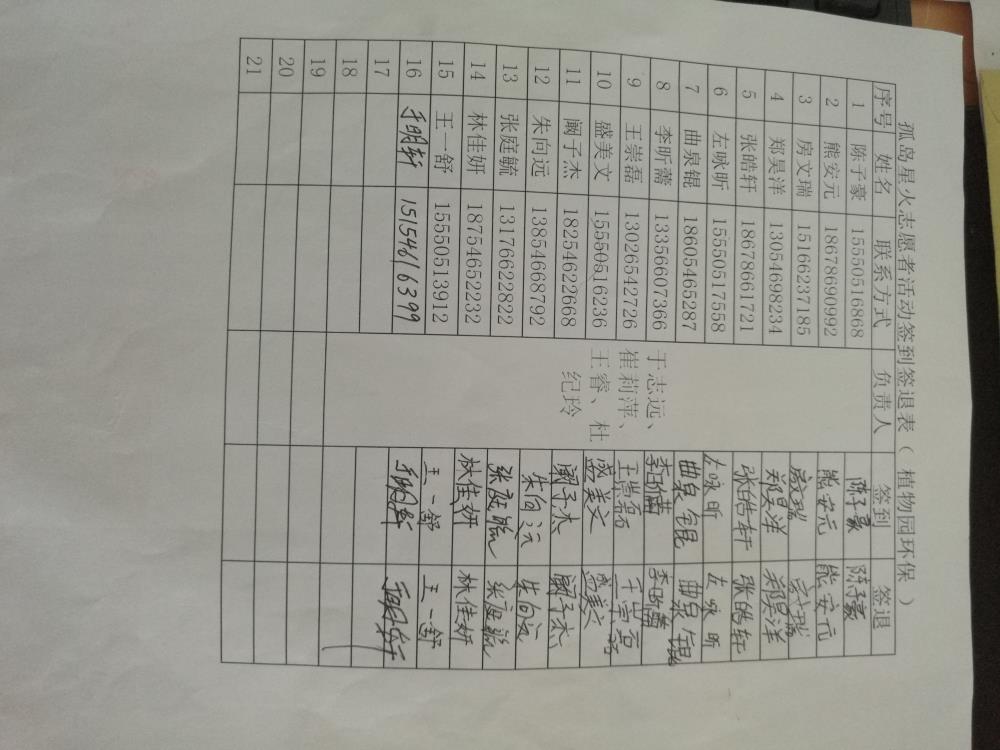 孤岛星火志愿者活动签到签退表（植物园环保）
序号 姓名 联系方式 负责人 签到 签退
1 陈子豪 15550516868 陈子豪 陈子豪
2 熊安元 18678690992 熊安元 熊安元
3 房文瑞 15166237185 房文瑞 房文瑞
4 郑昊洋 13054698234 郑昊洋 郑昊洋
5 张皓轩 18678661721 张皓轩 张皓轩
6 左咏昕 15550517558 左咏昕 左咏昕
7 曲泉锟 18605465287 曲泉锟 曲泉锟
8 李昕蕾 13356607366 于志远、 李昕蕾 李昕蕾
9 王崇磊 13026542726 崔莉萍、 王崇磊 王崇磊
10 盛美文 15550516236 王睿、杜 盛美文 盛美文
11 阚子杰 18254622668 纪玲 阚子杰 阚子杰
12 朱向远 13854668792 朱向远 朱向远
13 张庭毓 13176622822 张庭毓 张庭毓
14 林佳妍 18754652232 林佳妍 林佳妍
15 王一舒 15550513912 王一舒 王一舒
16 于明轩 15154616399 于明轩 于明轩
17
18
19
20
21